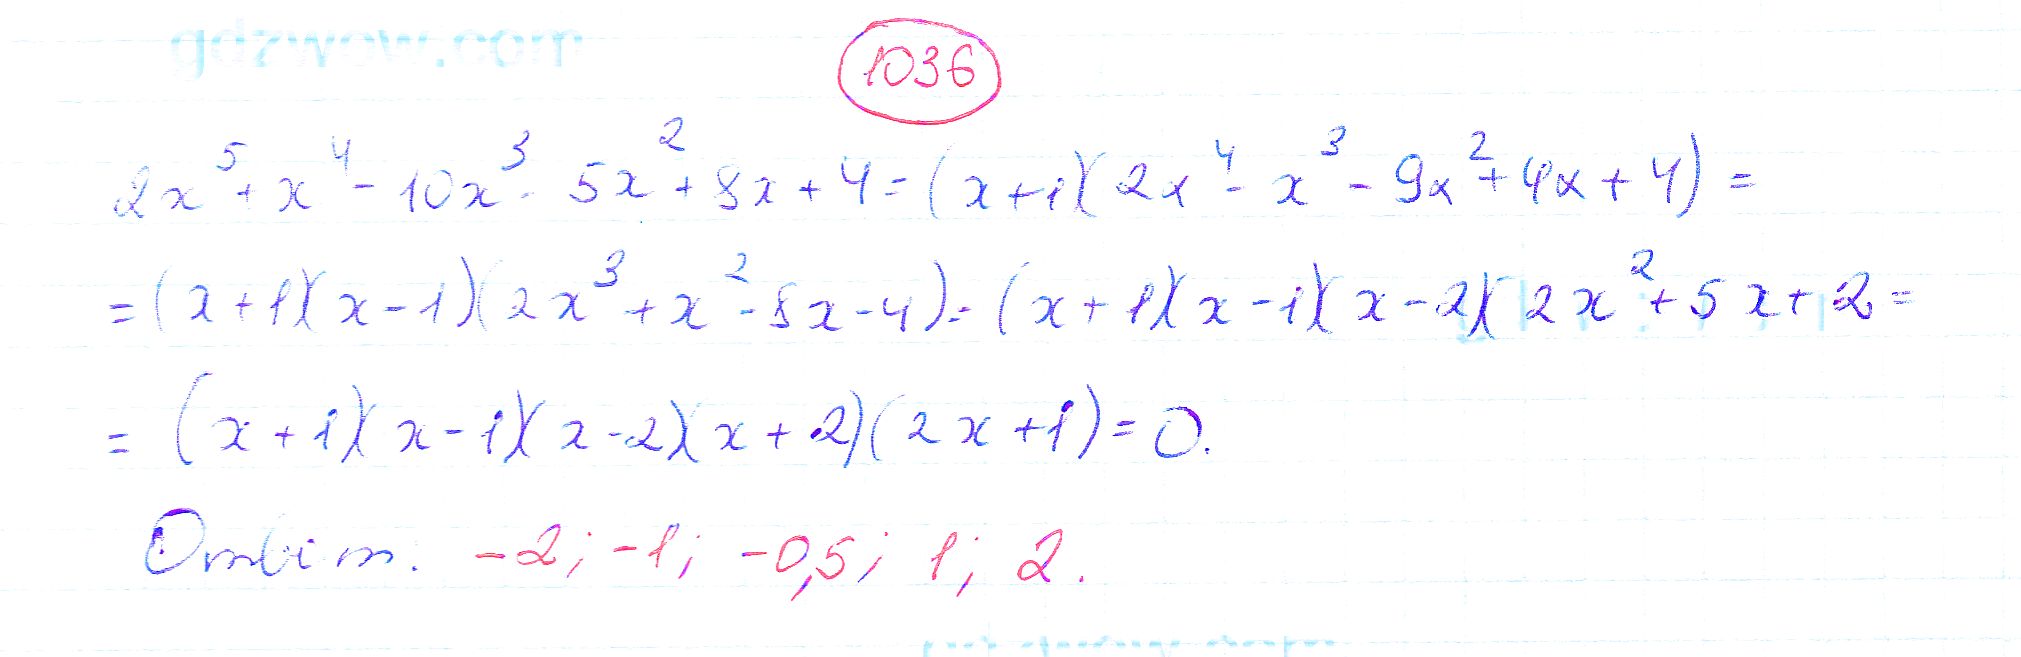 gdzwow.com
1036
2x⁵+x⁴-10x³-5x²+8x+4=(x+1)(2x⁴-x³-9x²+4x+4)=
=(x+1)(x-1)(2x³+x²-8x-4)=(x+1)(x-1)(x-2)(2x²+5x+2=
=(x+1)(x-1)(x-2)(x+2)(2x+1)=0.
Ответ: -2; -1; -0,5; 1; 2.